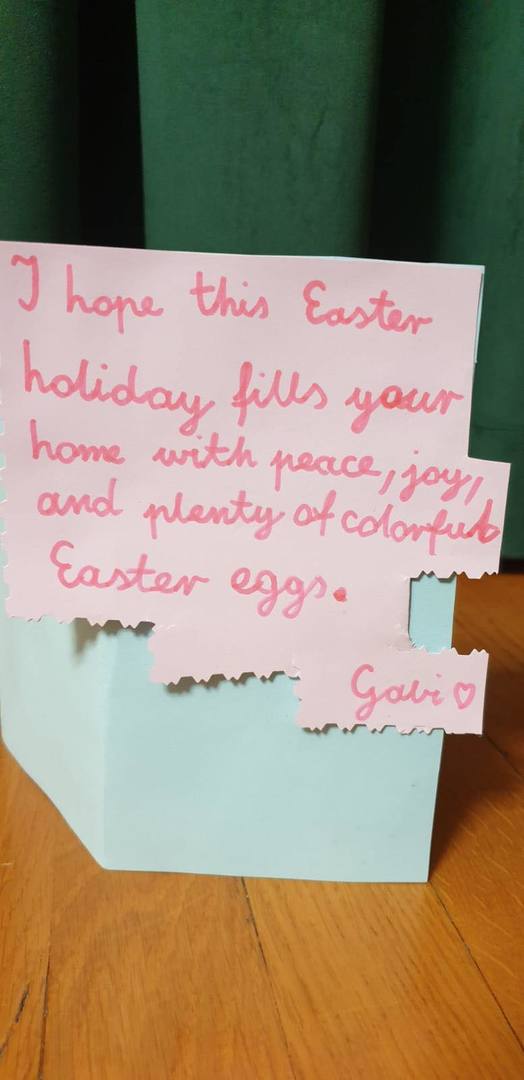 I hope this Easter
holiday fills your
home with peace, joy,
and plenty of colorful
Easter eggs.
Gabi ♡